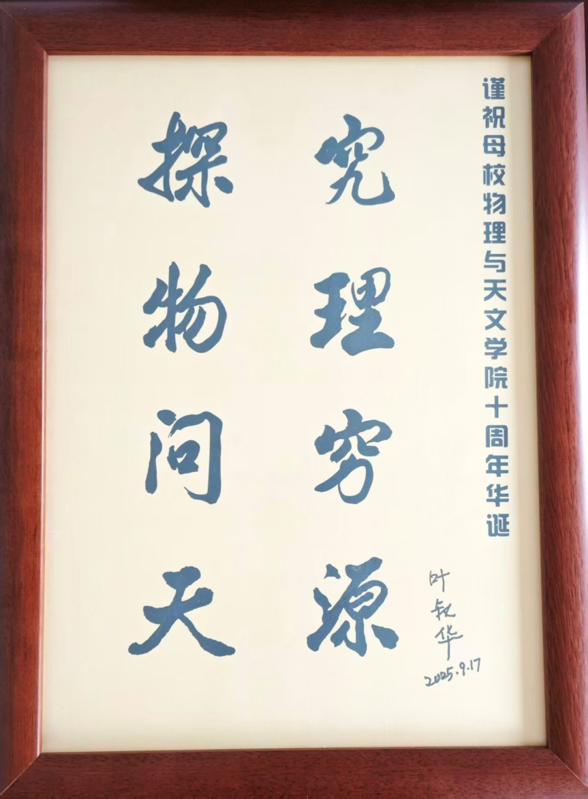 谨祝母校物理与天文学院十周年华诞
究理穷源
探物问天
叶叔华
2025.9.17